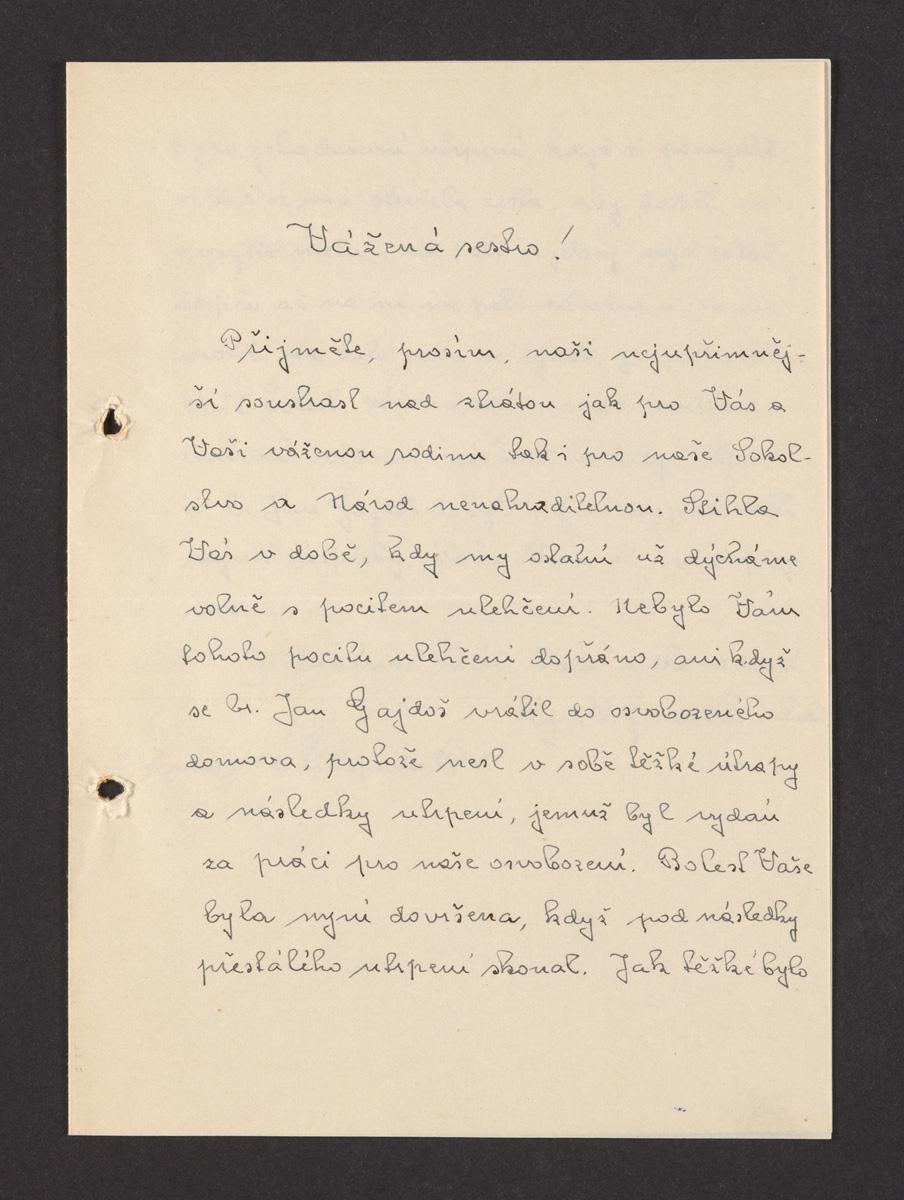 Vážená sestro!
Přijměte, prosím, naši nejupřimněj-
ší soustrast nad ztrátou jak pro Vás a
Vaši váženou rodinu tak i pro naše Sokol-
stvo a Národ nenahraditelnou. Stihla
Vás v době, kdy my ostatní už dýcháme
volně s pocitem ulehčení. Nebylo Vám
tohoto pocitu ulehčení dopřáno, ani když
se br. Jan Gajdoš vrátil do osvobozeného
domova, protože nesl v sobě těžké útrapy
a následky utrpení, jemuž byl vydán
za práci pro naše osvobození. Bolest Vaše
byla nyní dovršena, když pod následky
přestálého utrpení skonal. Jak těžké bylo